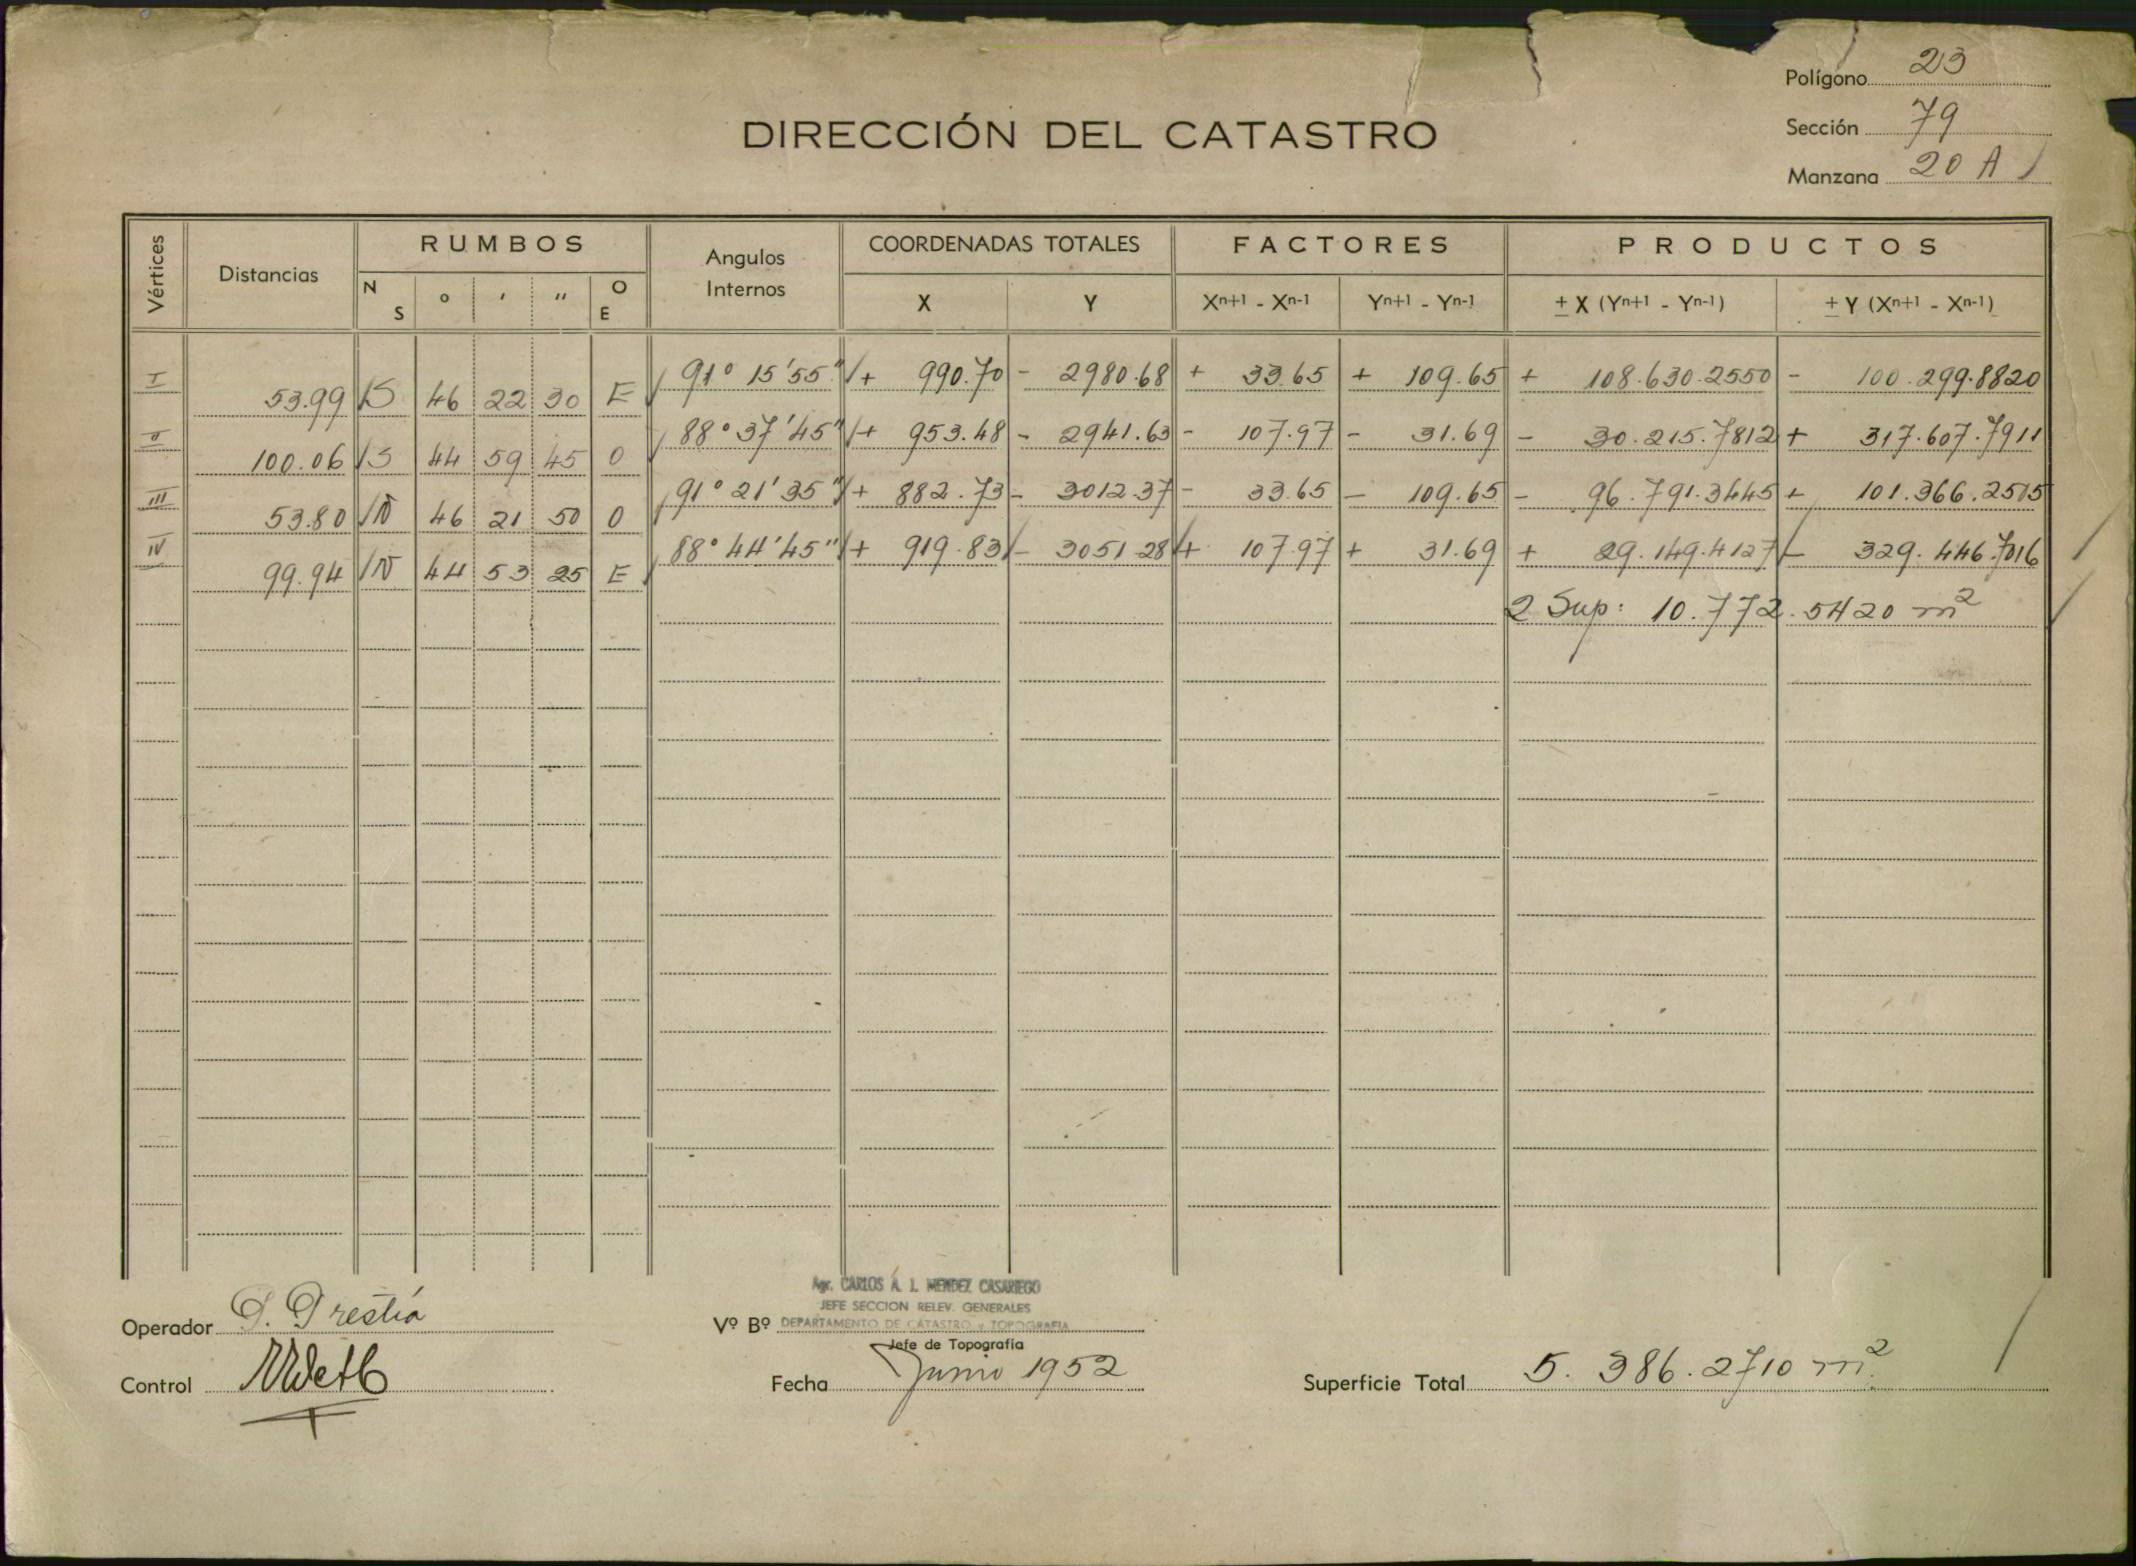 Polígono 23
Sección 79
Manzana 20 A
DIRECCIÓN DEL CATASTRO
Vértices Distancias RUMBOS Angulos Internos COORDENADAS TOTALES FACTORES PRODUCTOS
N S ° ' " O E X Y Xⁿ⁺¹ - Xⁿ⁻¹ Yⁿ⁺¹ - Yⁿ⁻¹ ± X (Yⁿ⁺¹ - Yⁿ⁻¹) ± Y (Xⁿ⁺¹ - Xⁿ⁻¹)
I 91° 15' 55" + 990.70 - 2980.68 + 33.65 + 109.65 + 108.630.2550 - 100.299.8820
53.99 S 46 22 30 E
II 88° 37' 45" + 953.48 - 2941.63 - 107.97 - 31.69 - 30.215.7812 + 317.607.7911
100.06 S 44 59 45 O
III 91° 21' 35" + 882.73 - 3012.37 - 33.65 - 109.65 - 96.791.3445 + 101.366.2505
53.80 N 46 21 50 O
IV 88° 44' 45" + 919.83 - 3051.28 + 107.97 + 31.69 + 29.149.4127 - 329.446.7016
99.94 N 44 53 25 E
2 Sup: 10.772.5420 m²
Agr. CARLOS A. J. MENDEZ CASARIEGO
JEFE SECCION RELEV. GENERALES
Operador Vº Bº DEPARTAMENTO DE CATASTRO y TOPOGRAFIA
Jefe de Topografía
Control Fecha Junio 1952 Superficie Total 5.386.2710 m²